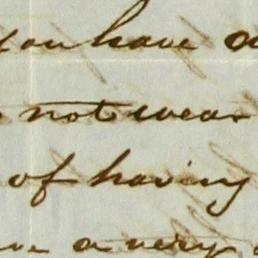 you have
not wear
of having
a very